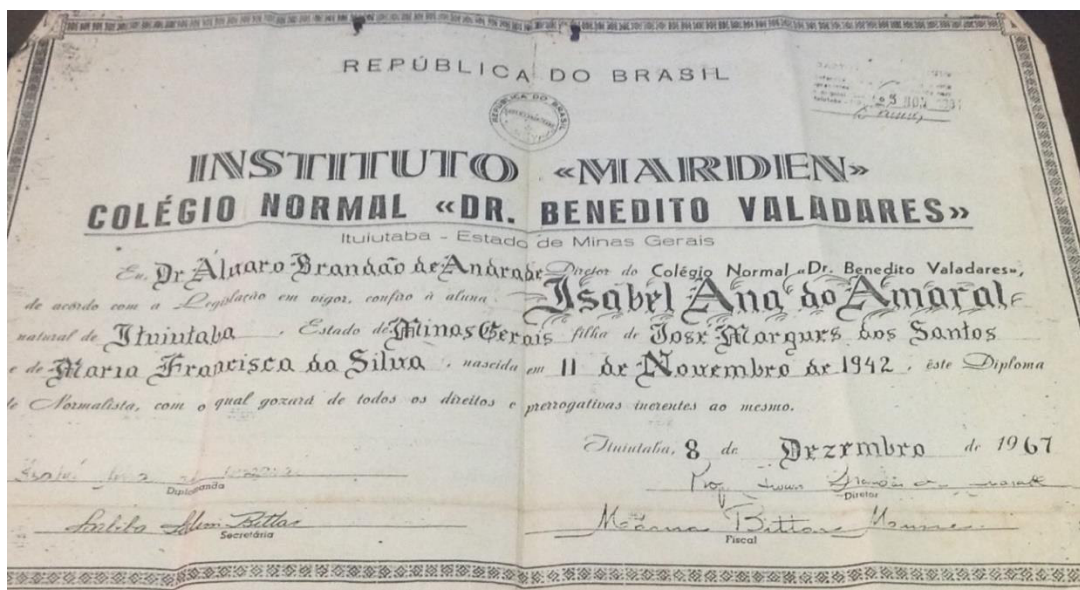 REPÚBLICA DO BRASIL
REPÚBLICA DO BRASIL
INSTITUTO «MARDEN»
COLÉGIO NORMAL «DR. BENEDITO VALADARES»
Ituiutaba - Estado de Minas Gerais
Eu, Dr Álvaro Brandão de Andrade Diretor do Colégio Normal «Dr. Benedito Valadares»,
de acôrdo com a Legislação em vigor, confiro à aluna Isabel Ana do Amaral
natural de Ituiutaba, Estado de Minas Gerais filha de José Marques dos Santos
e de Maria Francisca da Silva, nascida em 11 de Novembro de 1942, êste Diploma
de Normalista, com o qual gozará de todos os direitos e prerrogativas inerentes ao mesmo.
Ituiutaba, 8 de Dezembro de 1967
Diplomanda
Diretor
Bittar
Secretária
Bittar
Fiscal